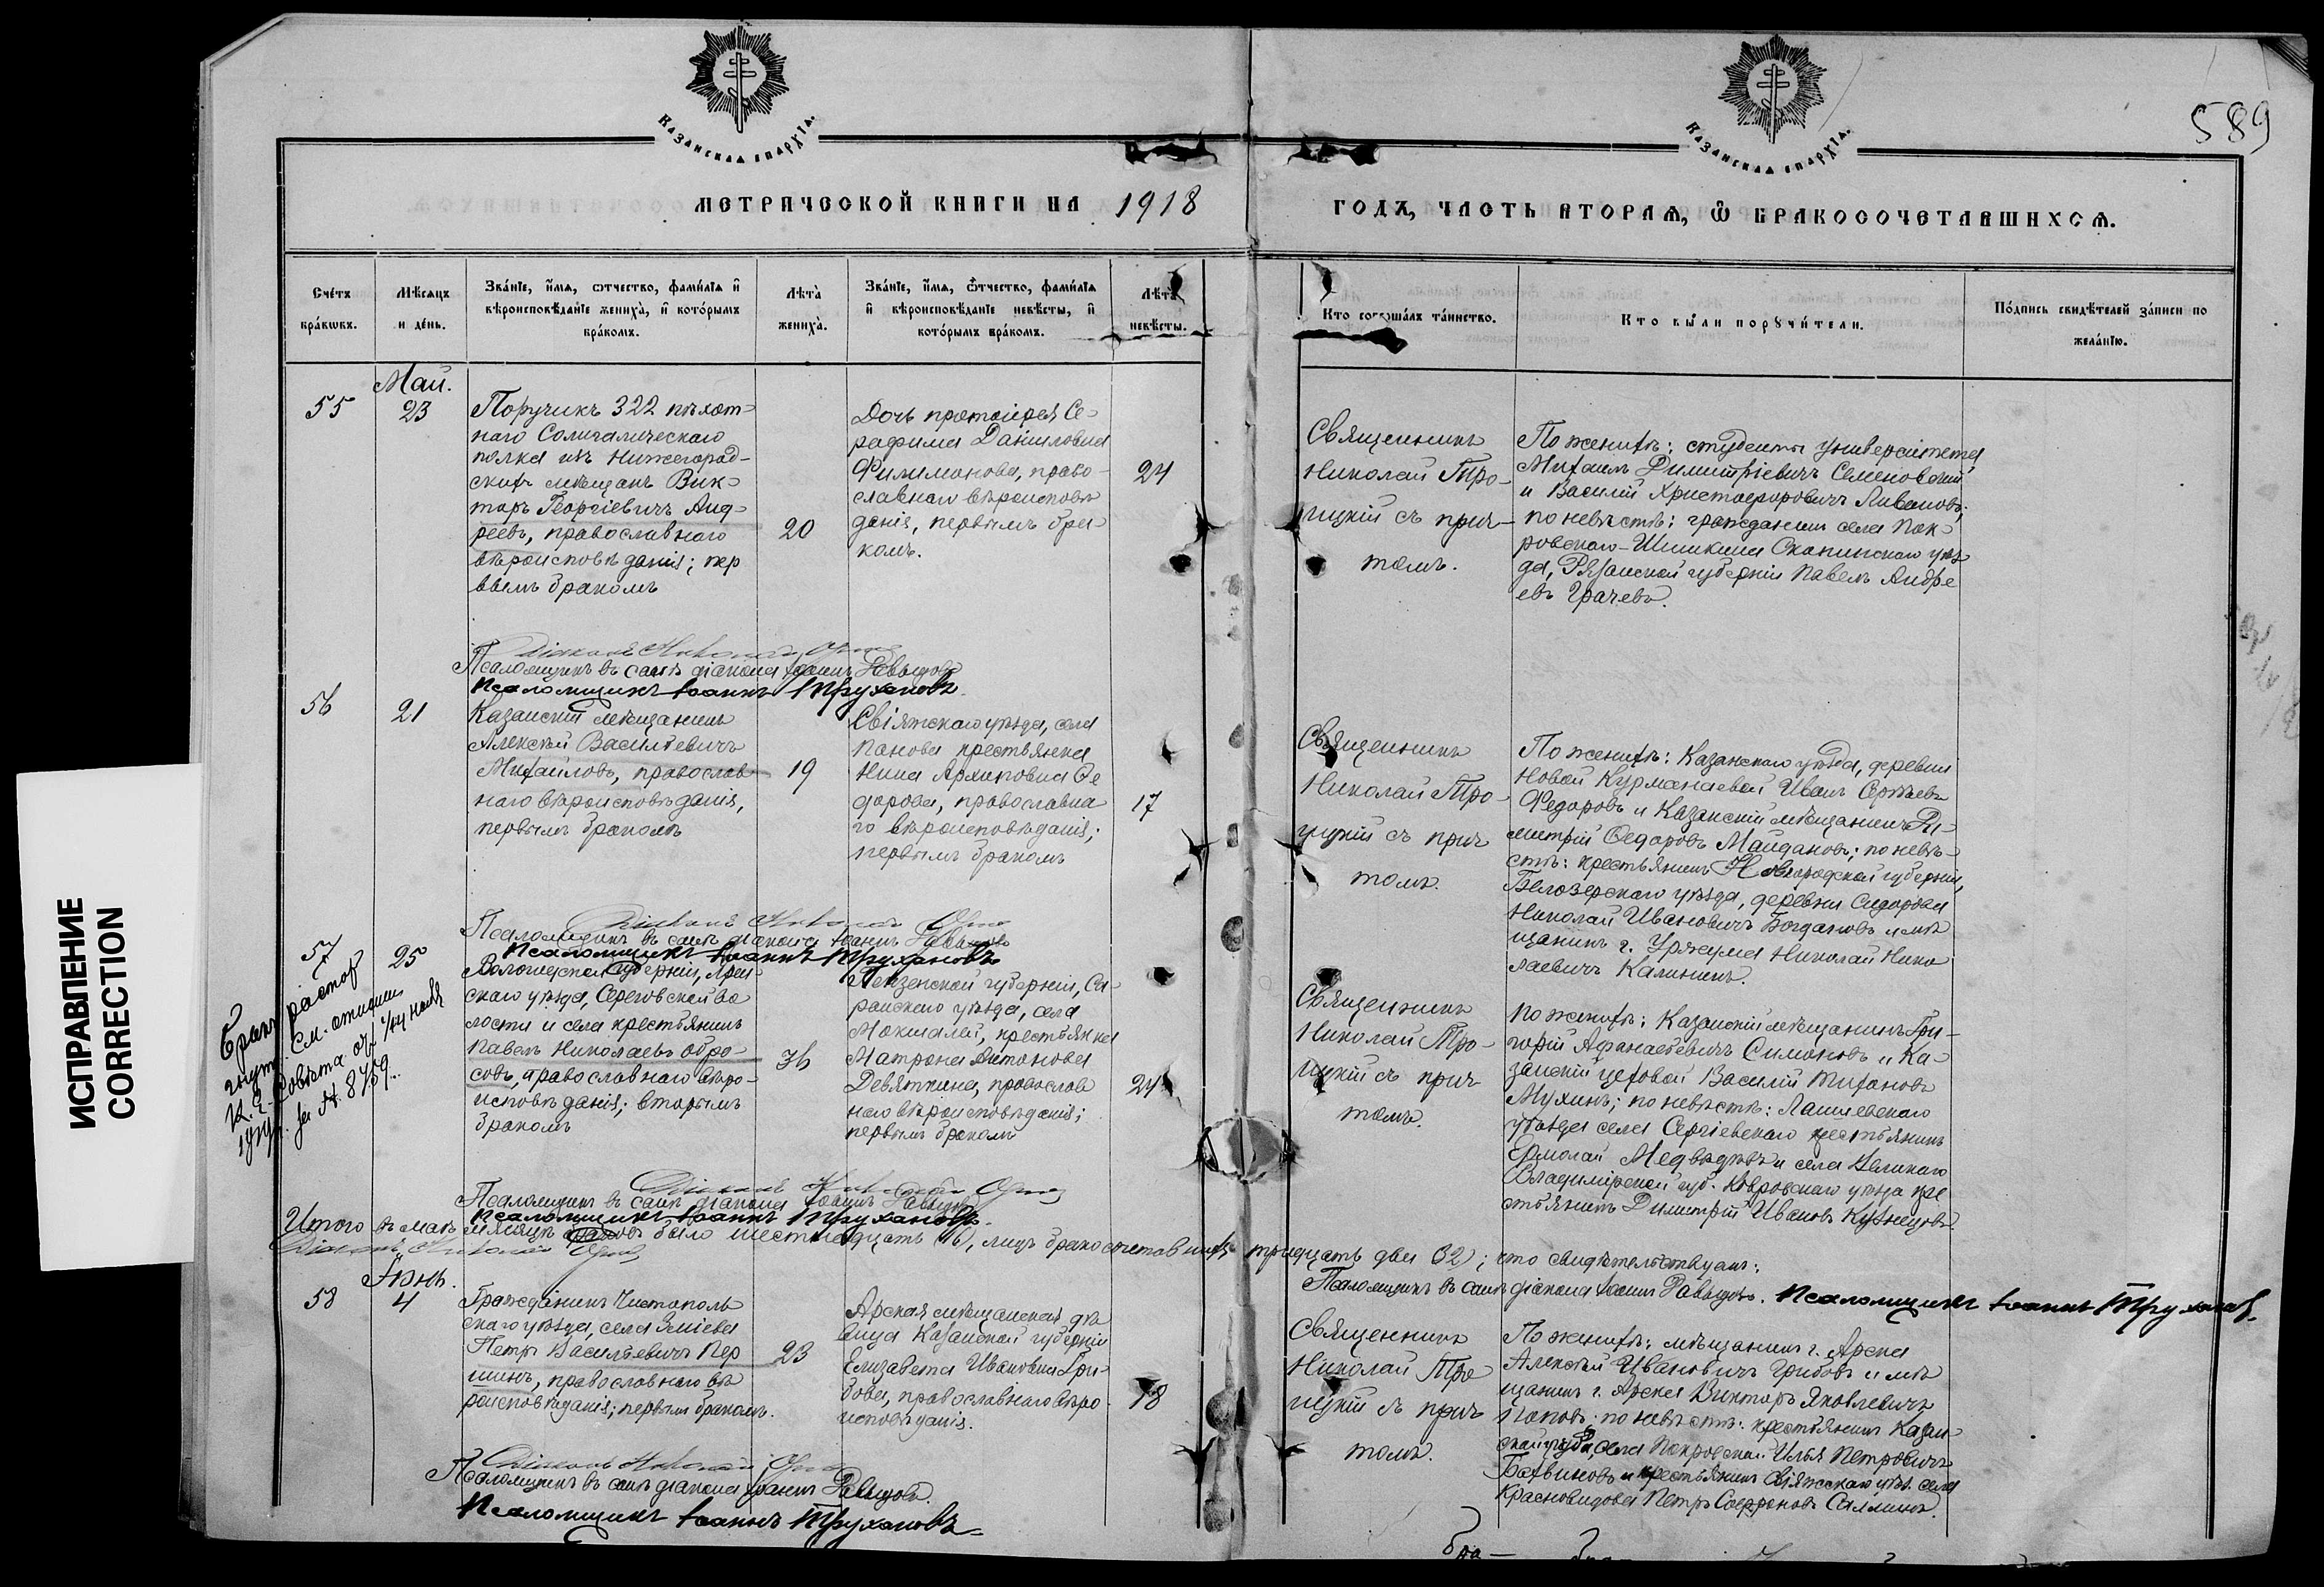 КАЗАНСКАЯ ЕПАРХІЯ.
КАЗАНСКАЯ ЕПАРХІЯ.
589
МЕТРИЧЕСКОЙ КНИГИ НА 1918
ГОДЪ, ЧАСТЬ ВТОРАЯ, Ѿ БРАКОСОЧЕТАВШИХСЯ.
Сче́тъ бра́ковъ.
Мѣсяцъ и де́нь.
Зва́нїе, и́мя, ѻтчество, фами́лїя и вѣроисповѣданїе жениха̀, и кото́рымъ бра́комъ.
Лѣта̀ жениха̀.
Зва́нїе, и́мя, ѻтчество, фами́лїя и вѣроисповѣданїе невѣсты, и кото́рымъ бра́комъ.
Лѣта̀ невѣсты.
Кто соверша́лъ та́инство.
Кто были поручи́тели.
По́дпись свидѣтелей за́писи по жела́нїю.
Май.
55
23
Поручикъ 322 пѣхот-
наго Солигаличскаго
полка изъ Нижегород-
скихъ мѣщанъ Вик-
торъ Георгіевичъ Анд-
реевъ, православнаго
вѣроисповѣданія; пер
вымъ бракомъ
20
Дочь протоіерея Се-
рафима Даниловна
Филимонова, право-
славнаго вѣроисповѣ
данія, первымъ бра-
комъ.
24
Священникъ
Николай Тро-
ицкій съ прич-
томъ.
По женихѣ: студенты университета
Михаилъ Димитріевичъ Семеновскій
и Василій Христофоровичъ Ливановъ;
по невѣстѣ: гражданин села Пок-
ровскаго-Шишкина Скопинскаго уѣз
да, Рязанской губерніи Павелъ Андре
евъ Грачевъ.
Діаконъ Николай
Псаломщикъ въ санѣ діакона Іоаннъ Давыдовъ
Псаломщикъ Іоаннъ Трухановъ.
56
21
Казанскій мѣщанинъ
Алексѣй Васильевичъ
Михайловъ, православ-
наго вѣроисповѣданія,
первымъ бракомъ
19
Свіяжскаго уѣзда, села
Панова крестьянка
Нина Архиповна Ѳе
дорова, православна
го вѣроисповѣданія;
первымъ бракомъ
17
Священникъ
Николай Тро-
ицкій съ прич
томъ.
По женихѣ: Казанскаго уѣзда, деревни
Новой Курманаевой Иванъ Сергѣевъ
Федоровъ и Казанскій мѣщанинъ Ди-
митрій Ѳедоровъ Майдановъ; по невѣ-
стѣ: крестьянинъ Новгородской губерніи,
Белозерскаго уѣзда, деревни Сидорова
Николай Ивановичъ Богдановъ и мѣ
щанинъ г. Уржума Николай Нико
лаевичъ Калининъ.
Діаконъ Николай
Псаломщикъ въ санѣ діакона Іоаннъ Давыдовъ
Псаломщикъ Іоаннъ Трухановъ
57
25
Бракъ растор
гнутъ. См. отношен
1919 г. за №. 8759.
Вологодской губерніи, Ярен-
скаго уѣзда, Сереговской во
лости и села крестьянинъ
Павелъ Николаевъ Обро-
совъ, православнаго вѣро-
исповѣданія; вторымъ
бракомъ
36
Пензенской губерніи, Са-
ранскаго уѣзда, села
Мокшалей, крестьянка
Матрона Антонова
Девяткина, православ
наго вѣроисповѣданія;
первымъ бракомъ
24
Священникъ
Николай Тро-
ицкій съ прич
томъ.
По женихѣ: Казанскій мѣщанинъ Гри-
горій Афанасьевичъ Симоновъ и Ка-
занскій цеховой Василій Тихановъ
Мухинъ; по невѣстѣ: Лаишевскаго
уѣзда села Сергіевскаго крестьянинъ
Ермолай Медвѣдевъ и села Великаго
Владимірской губ. Ковровскаго уѣзда кре
стьянинъ Димитрій Ивановъ Кузнецовъ.
Діаконъ Николай
Псаломщикъ въ санѣ діакона Іоаннъ Давыдовъ
Псаломщикъ Іоаннъ Трухановъ.
Итого въ маѣ мѣсяцѣ браковъ было шестнадцать (16), лицъ бракосочетавшихся тридцать два (32); что свидѣтельствуемъ:
Діаконъ Николай
Псаломщикъ въ санѣ діакона Іоаннъ Давыдовъ. Псаломщикъ Іоаннъ Трухановъ.
Іюнь.
58
4
Гражданинъ Чистополь
скаго уѣзда, села Змѣева
Петръ Васильевичъ Пер
шинъ, православнаго вѣ
роисповѣданія; первымъ бракомъ.
23
Арская мѣщанская дѣ
вица Казанской губерніи
Елизавета Ивановна Гри
бова, православнаго вѣро-
исповѣданія.
18
Священникъ
Николай Тро
ицкій съ прич
томъ.
По женихѣ: мѣщанинъ г. Арска
Алексѣй Ивановичъ Грибовъ и мѣ
щанинъ г. Арска Викторъ Яковлевичъ
Поповъ; по невѣстѣ: крестьянинъ Казан-
ской губ., села Покровскаго Илья Петровичъ
Батвиновъ и крестьянинъ Свіяжскаго уѣз. села
Красновидова Петръ Софроновъ Салминъ.
Діаконъ Николай
Псаломщикъ въ санѣ діакона Іоаннъ Давыдовъ.
Псаломщикъ Іоаннъ Трухановъ
ИСПРАВЛЕНИЕ
CORRECTION